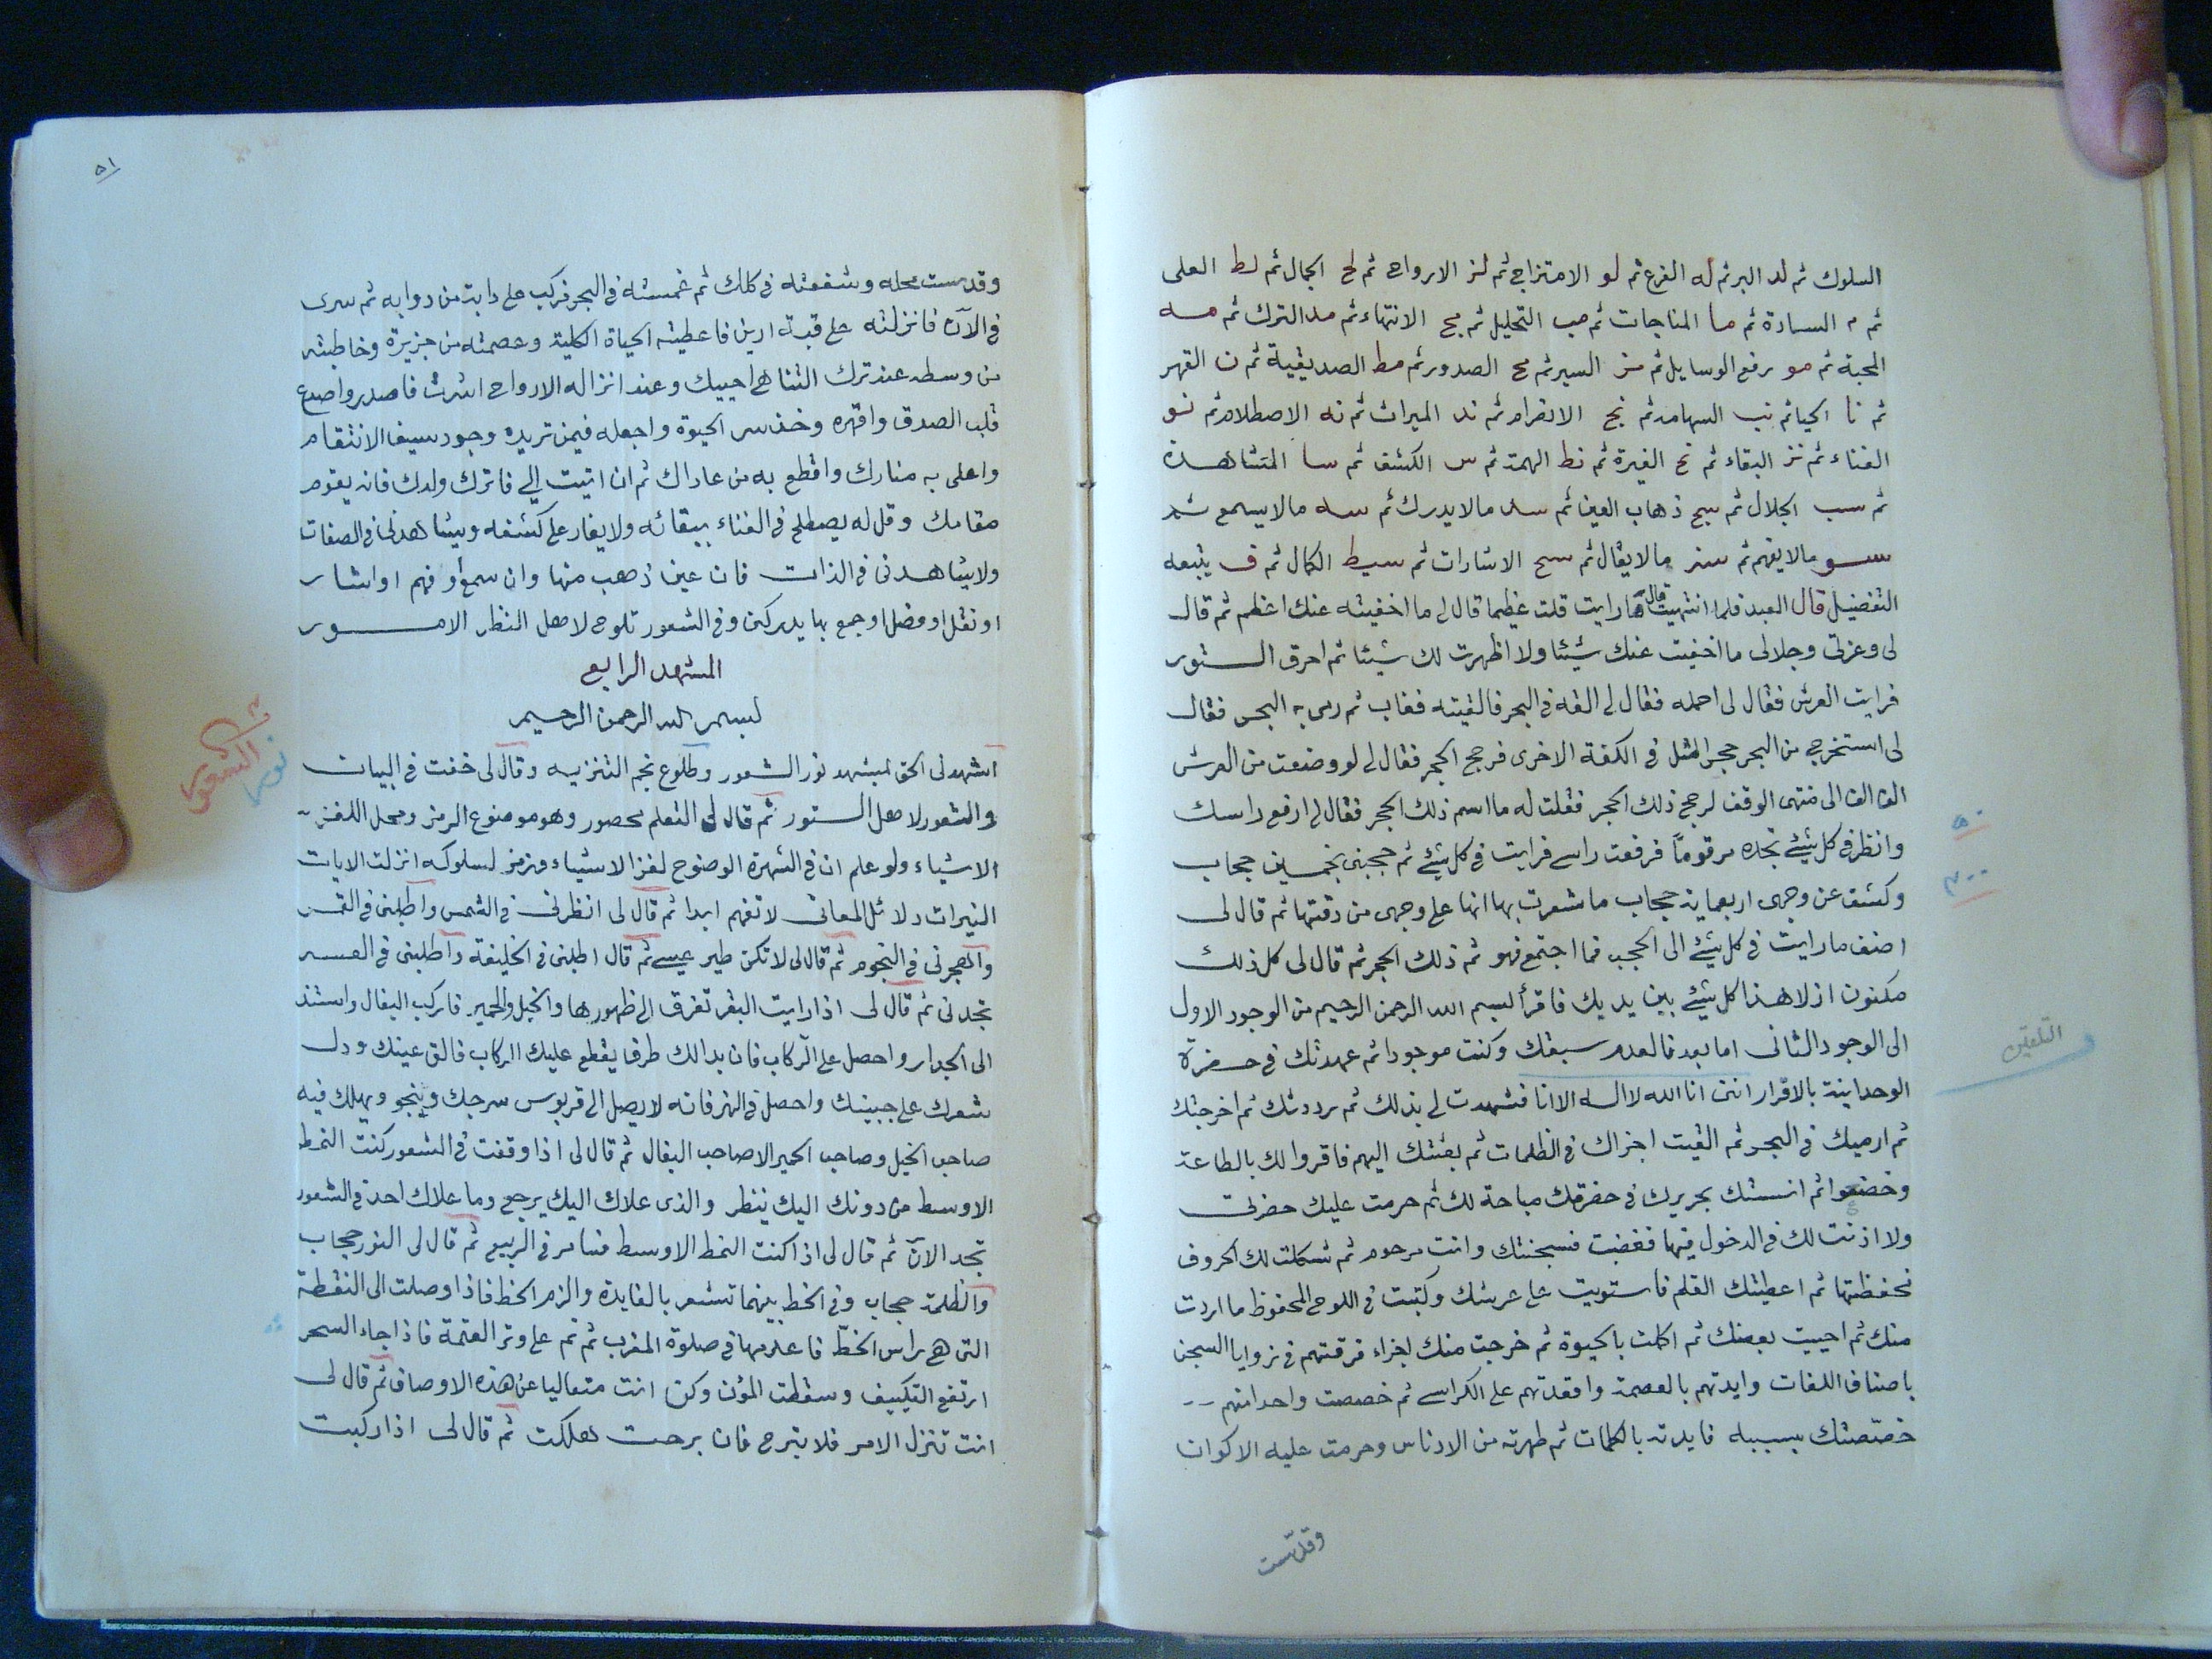 السلوك ثم لد البر ثم له الفرع ثم لو الامتزاج ثم لز الارواح ثم لح الجمال ثم لط العلى
ثم م السادة ثم ما المناجات ثم مب التحليل ثم مج الانتهاء ثم مد الترك ثم مه
المحبة ثم مو رفع الوسايل ثم مز السير ثم مح الصدور ثم مط الصديقية ثم ن القهر
ثم نا الحيا ثم نب السهامه ثم نج الانصرام ثم ند الميراث ثم نه الاصطلام ثم نو
الفناء ثم نز البقاء ثم نح الغيرة ثم نط الهمة ثم س الكشف ثم سا المشاهدة
ثم سب الجلال ثم سج ذهاب العين ثم سد مالا يدرك ثم سه مالا يسمع ثم
سو مالا يفهم ثم سز مالا يقال ثم سح الاشارات ثم سيط الكمال ثم ف يتبعه
التفضيل قال العبد فلما انتهيت قال ما رايت قلت عظيما قال لى ما اخفيته عنك اعظم ثم قال
لى وعزتى وجلالى ما اخفيت عنك شيئا ولا اظهرت لك شيئا ثم احرق الستور
فرايت العرش فقال لى احمله فقال لى القه فى البحر فالقيته فغاب ثم رمى به البحر فقال
لى استخرج من البحر حجر المثل فى الكفة الاخرى فرجح الحجر فقال لى لو وضعت من العرش
الف الف الى منتهى الوقف لرجح ذلك الحجر فقلت له ما اسم ذلك الحجر فقال لى ارفع راسك
وانظر فى كل شيئ تجده مرقوماً فرفعت راسى فرايت فى كل شيئ ثم حجبنى بخمسين حجاب
وكشف عن وجهى اربعماية حجاب ما شعرت بها انها على وجهى من دقتها ثم قال لى
اضف ما رايت فى كل شيئ الى الحجب فما اجتمع فهو ثم ذلك الحجر ثم قال لى كل ذلك
مكنون ازلا هذا كل شيئ بين يديك فاقرأ بسم الله الرحمن الرحيم من الوجود الاول
الى الوجود الثانى اما بعد فالعدم سبقك وكنت موجودا ثم عهدتك فى حضرة
الوحداينة بالاقرار اننى انا الله لا اله الا انا فشهدت لى بذلك ثم رددتك ثم اخرجتك
ثم ارميك فى البحر ثم القيت اجزاك فى الظلمات ثم بعثتك اليهم فاقروا لك بالطاعة
وخضعوا ثم انستك بجريرك فى حضرتك مباحة لك ثم حرمت عليك حضرتى
ولا اذنت لك فى الدخول فيها فغضبت فسجنتك وانت مرحوم ثم شكلت لك الحروف
فحفظتها ثم اعطيتك القلم فاستويت على عرشك وكتبت فى اللوح المحفوظ ما اردت
منك ثم احييت بعضك ثم اكلت بالحيوة ثم خرجت منك اجزاء فرقتهم فى زوايا السجن
باصناف اللغات وايدتهم بالعصمة واقعدتهم على الكراسى ثم خصصت واحدا منهم
خصّصتك بسببه فايدته بالكلمات ثم طهرته من الادناس وحرمت عليه الاكوان
وقدست
٥٠
٤٠٠
التلقين
٥١
وقدست محله وشفعته فى كلك ثم غمسته فى البحر فركب على دابة من دوابه ثم سرى
فى الآن فانزلته على قبة ارين فاعطيته الحياة الكلية وعصمته من جزيرة وخاطبته
من وسطه عند ترك التناهى احييك وعند انزاله الارواح اشرت فاصدر واصدع
قلب الصدق واقهره وخف سر الحيوة واجعله فيمن تريده وجود سيف الانتقام
واعلى به منارك واقطع به من عاداك ثم ان اتيت الى فاترك ولدك فانه يقوم
مقامك وقل له يصطلم فى الفناء ببقائه ولا يغار على كشفه ويشاهدنى فى الصفات
ولا يشاهدنى فى الذات فان عين ذهب منها وان سمع او فهم او اشار
او نقل او فضل او جمع بها يدركن وفى الشعور تلوح لاهل النظر الامور
المشهد الرابع
بسم الله الرحمن الرحيم
اشهدنى الحق بمشهد نور الشعور وطلوع نجم التنزيه وقال لى خفت فى البيان
والشعور لاهل الستور ثم قال لى التعلم محصور وهو موضوع الرمز ومحل اللغز
الاشياء ولو علم ان فى الشهرة الوضوح لغز الاشياء ورمز لسلوكه انزلت الايات
النيرات دلائل المعانى لا تفهم ابدا ثم قال لى انظرنى فى الشمس واطلبنى فى القمر
واهجرنى فى النجوم ثم قال لى لا تكن طير عيسى ثم قال اطلبنى فى الخليفة واطلبنى فى العسس
تجدنى ثم قال لى اذا رايت البقر تغرق الى ظهورها والخيل والحمير فاركب البغال واستند
الى الجدار واحصل على الرّكاب فان بدالك طرف يقطع عليك الركاب فالق عينك ودل
شعرك على جبينك واحصل فى النهر فانه لا يصل الى قربوس سرجك وينجو ويهلك فيه
صاحب الخيل وصاحب الحمير الا صاحب البغال ثم قال لى اذا وقفت فى الشعور كنت النمط
الاوسط من دونك اليك ينظر والذى علاك اليك يرجع وما علاك احد فى الشعور
تجد الان ثم قال لى اذا كنت النمط الاوسط فسافر فى الربيع ثم قال لى النور حجاب
والظلمة حجاب وفى الخط بينهما تشعر بالفايدة والزم الخط فاذا وصلت الى النقطة
التى هى براس الخطّ فاعدمها فى صلوة المغرب ثم نم على وتر العتمة فاذا جاء السحر
ارتفع التكييف وسقطت المؤن وكن انت متعاليا عن هذه الاوصاف ثم قال لى
انت تنزل الامر فلا تبرح فان برحت هلكت ثم قال لى اذا ركبت
نور الشعور